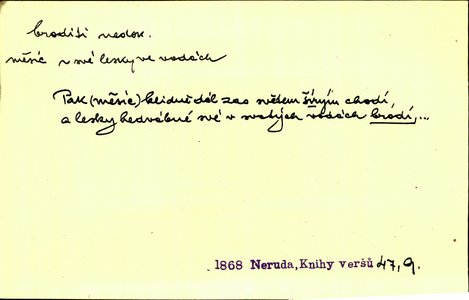 broditi nedok.
měsíc v své lesky ve vodách
Pak (měsíc) klidně dál zas světem širým chodí,
a lesky hedvábné své v malých vodách brodí,...
1868 Neruda, Knihy veršů 47, 9.